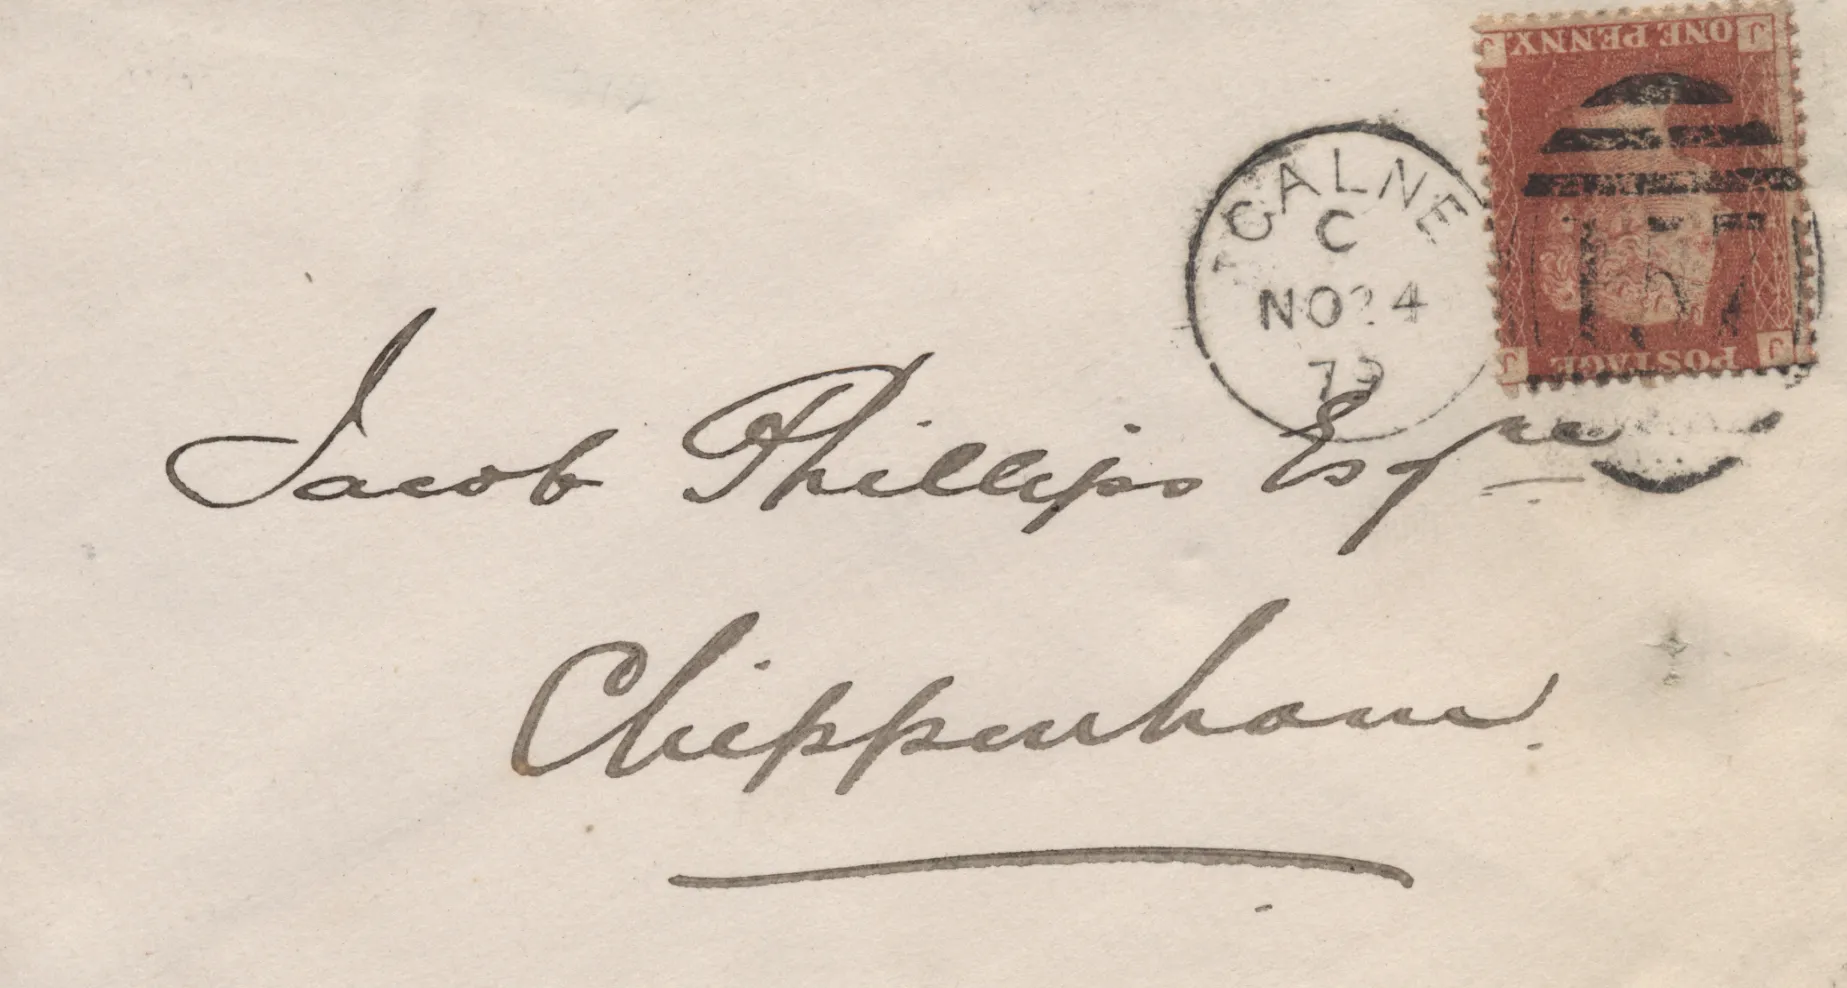 ONE PENNY
J J
CALNE
C
NO 24
79
J J
POSTAGE
Jacob Phillips Esqre
Chippenham.